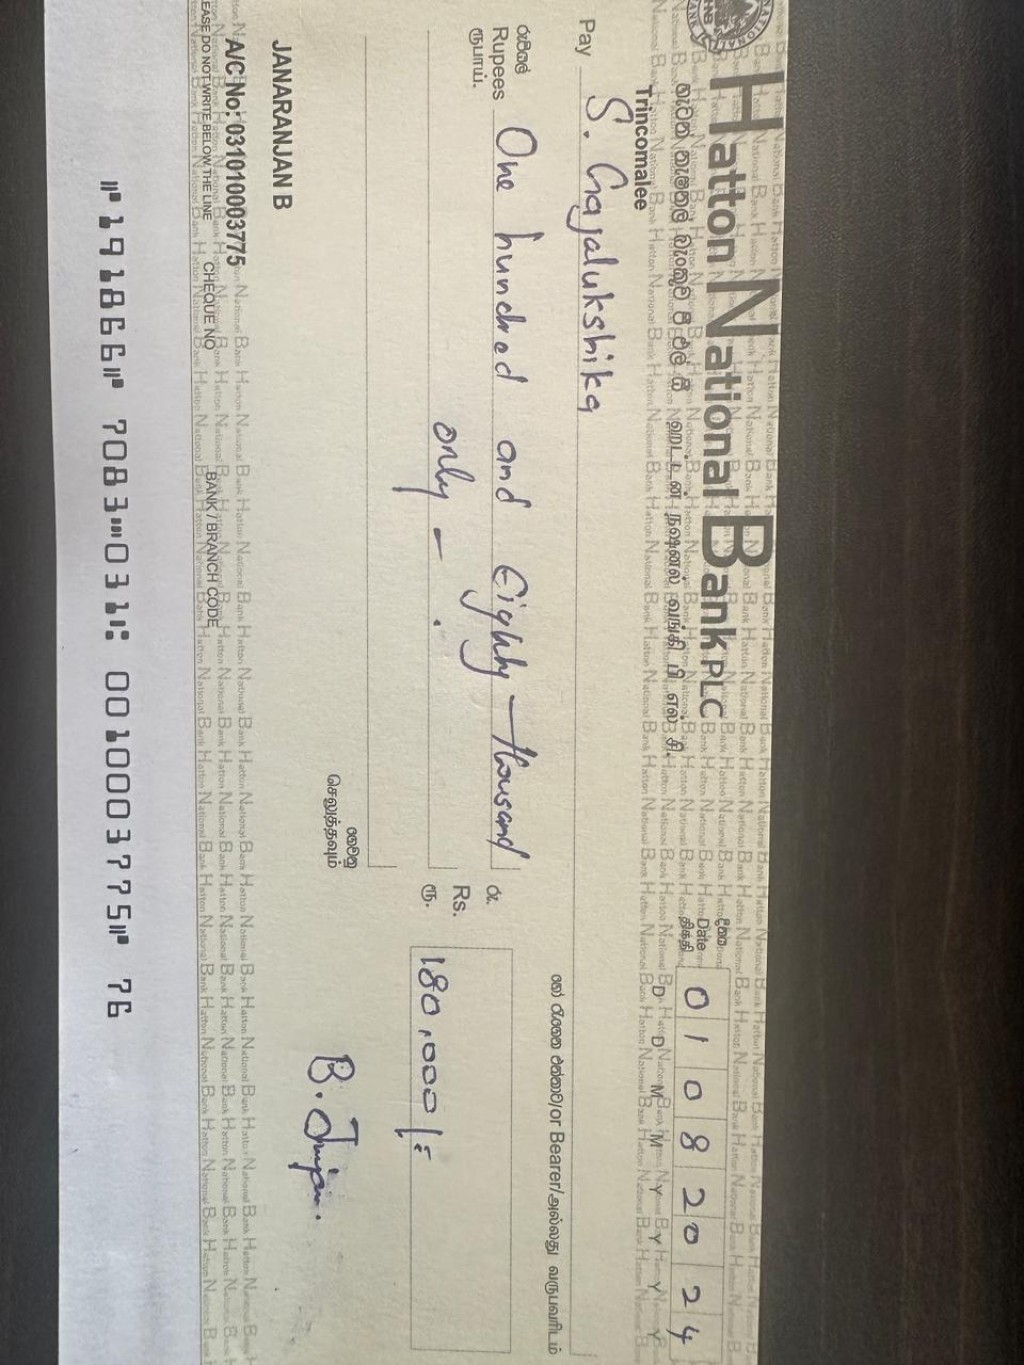 Hatton National Bank PLC
හැටන් නැෂනල් බැංකුව පී එල් සී ஹட்டன் நஷனல் வங்கி பி எல் சி.
Trincomalee
දිනය
Date
திகதி
0 1 0 8 2 0 2 4
D D M M Y Y Y Y
Pay S. Gajalukshika
හෝ රැගෙන එන්නාට/or Bearer/அல்லது வருபவரிடம்
රුපියල්
Rupees One hundred and Eighty thousand
ரூபாய்.
only - .
රු.
Rs. 180,000/=
ரூ.
ගෙවනු
செலுத்தவும்
JANARANJAN B
A/C No: 031010003775
EASE DO NOT WRITE BELOW THE LINE CHEQUE NO BANK / BRANCH CODE
⑈191866⑈ 7083⑉031⑆ 0010003775⑈ 76